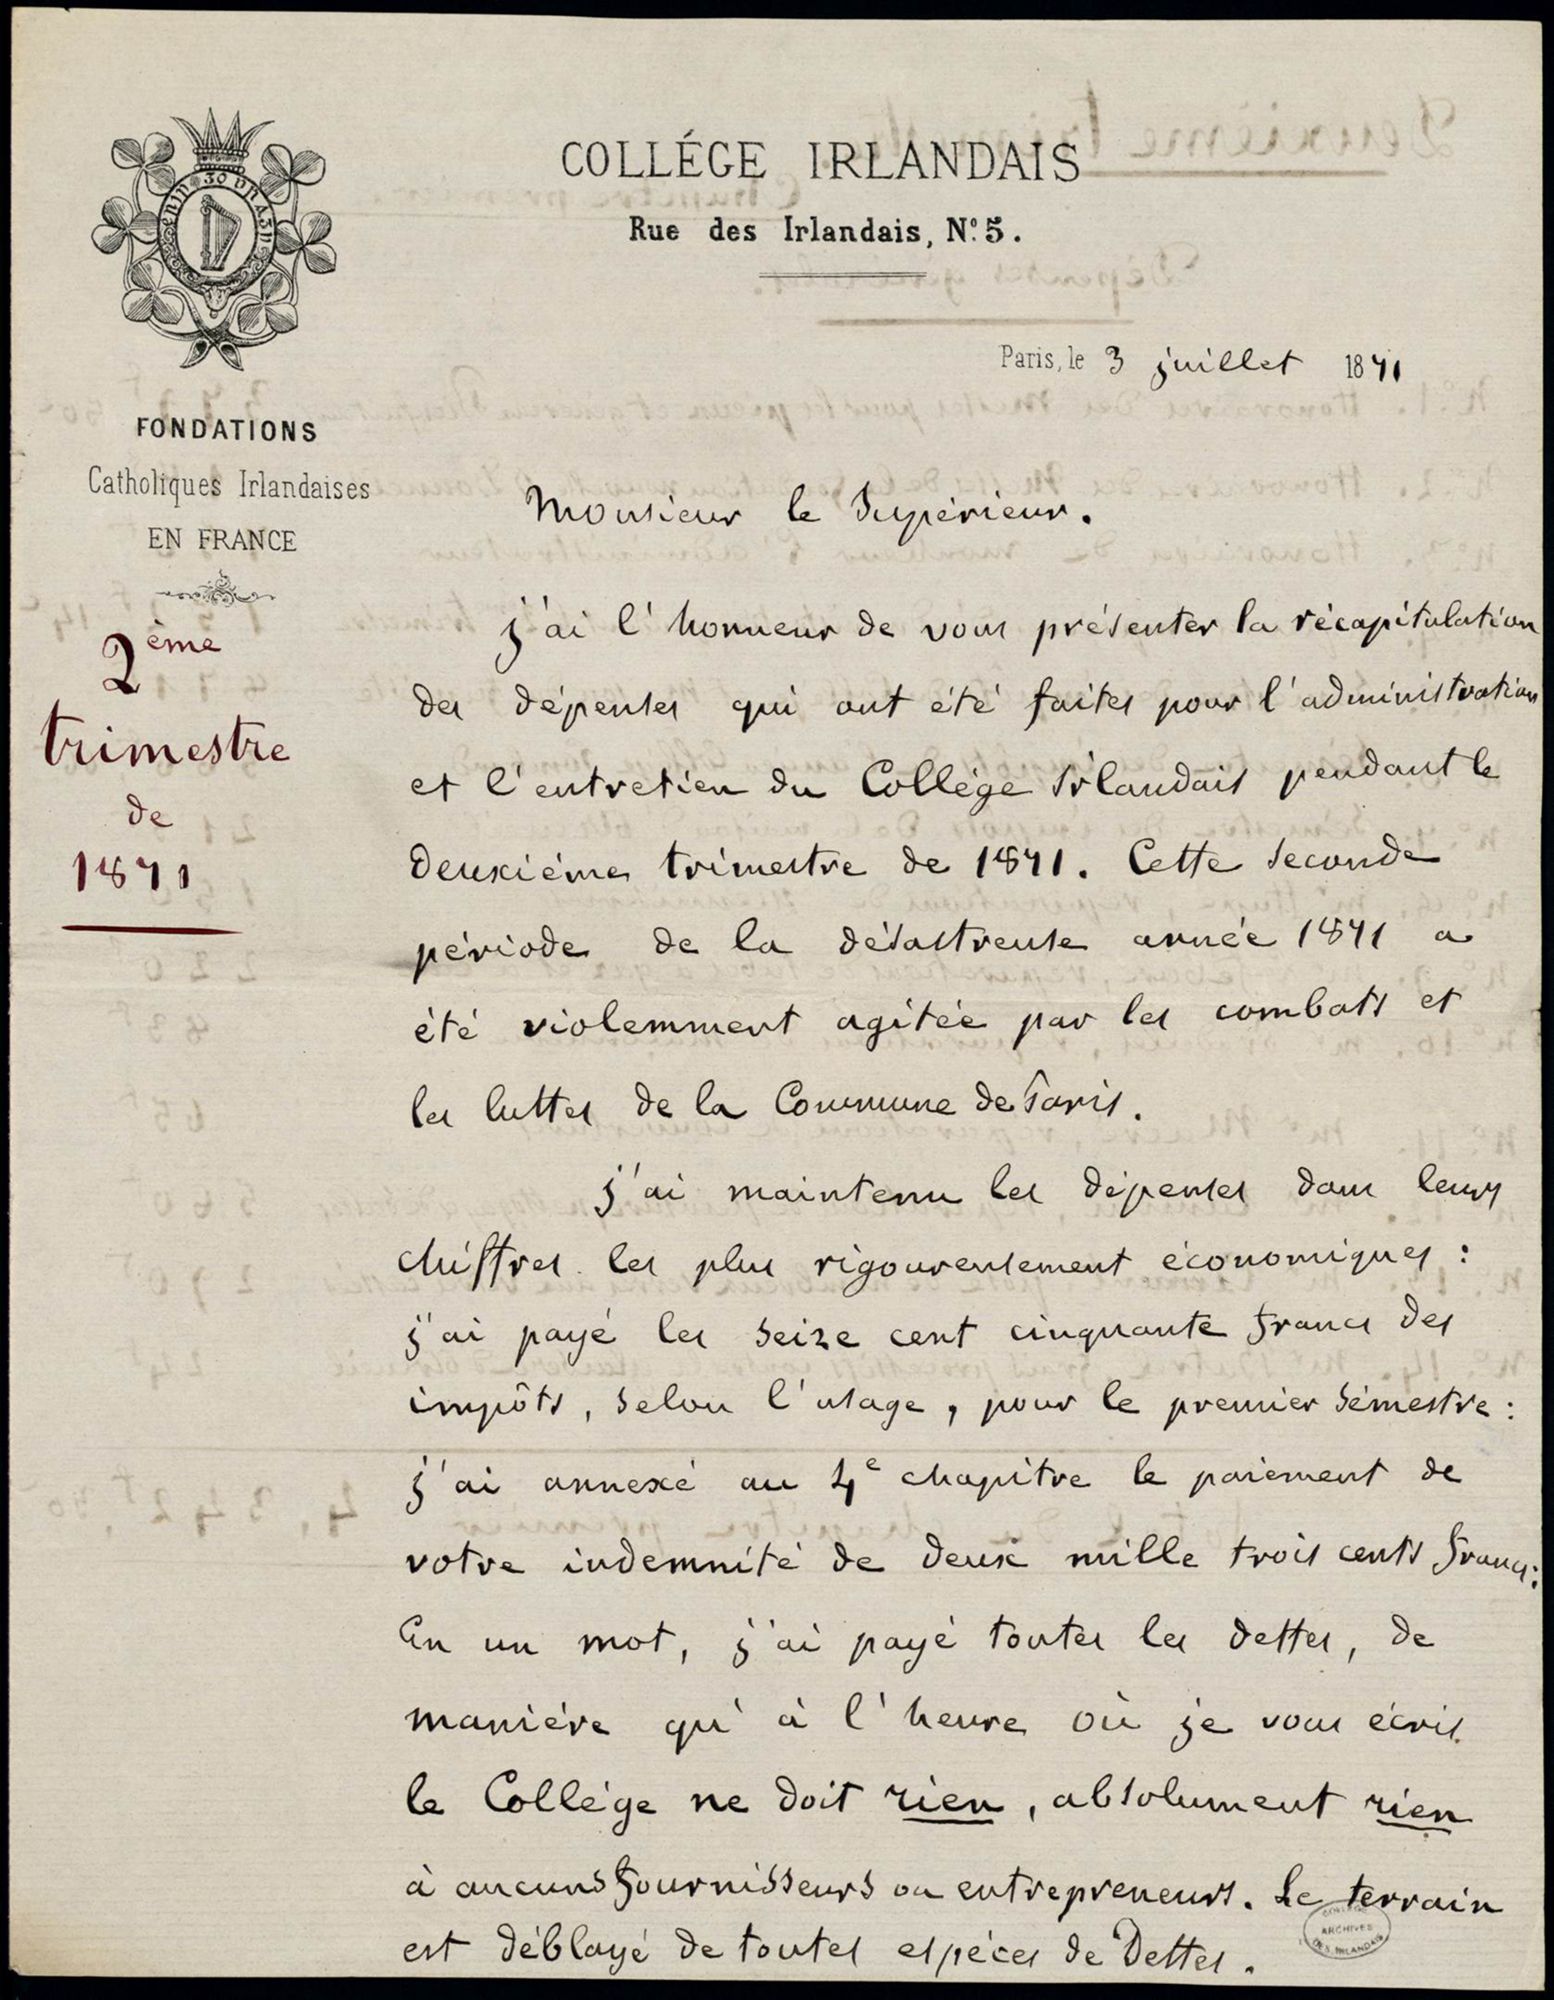 COLLÉGE IRLANDAIS
Rue des Irlandais, Nº 5.
ERIN GO BRAGH
FONDATIONS
Catholiques Irlandaises
EN FRANCE
Paris, le 3 juillet 1871
2ème
trimestre
de
1871
Monsieur le Supérieur.
j'ai l'honneur de vous présenter la récapitulation
des dépenses qui ont été faites pour l'administration
et l'entretien du Collége irlandais pendant le
deuxiéme trimestre de 1871. Cette seconde
période de la désastreuse année 1871 a
été violemment agitée par les combats et
les luttes de la Commune de Paris.
j'ai maintenu les dépenses dans leurs
chiffres les plus rigoureusement économiques :
j'ai payé les seize cent cinquante francs des
impôts, selon l'usage, pour le premier sémestre :
j'ai annexé au 4e chapitre le paiement de
votre indemnité de deux mille trois cents francs :
En un mot, j'ai payé toutes les dettes, de
maniére qu'à l'heure où je vous écris
le Collége ne doit rien, absolument rien
à aucuns fournisseurs ou entrepreneurs. Le terrain
est déblayé de toutes espéces de Dettes.
ARCHIVES
DES IRLANDAIS